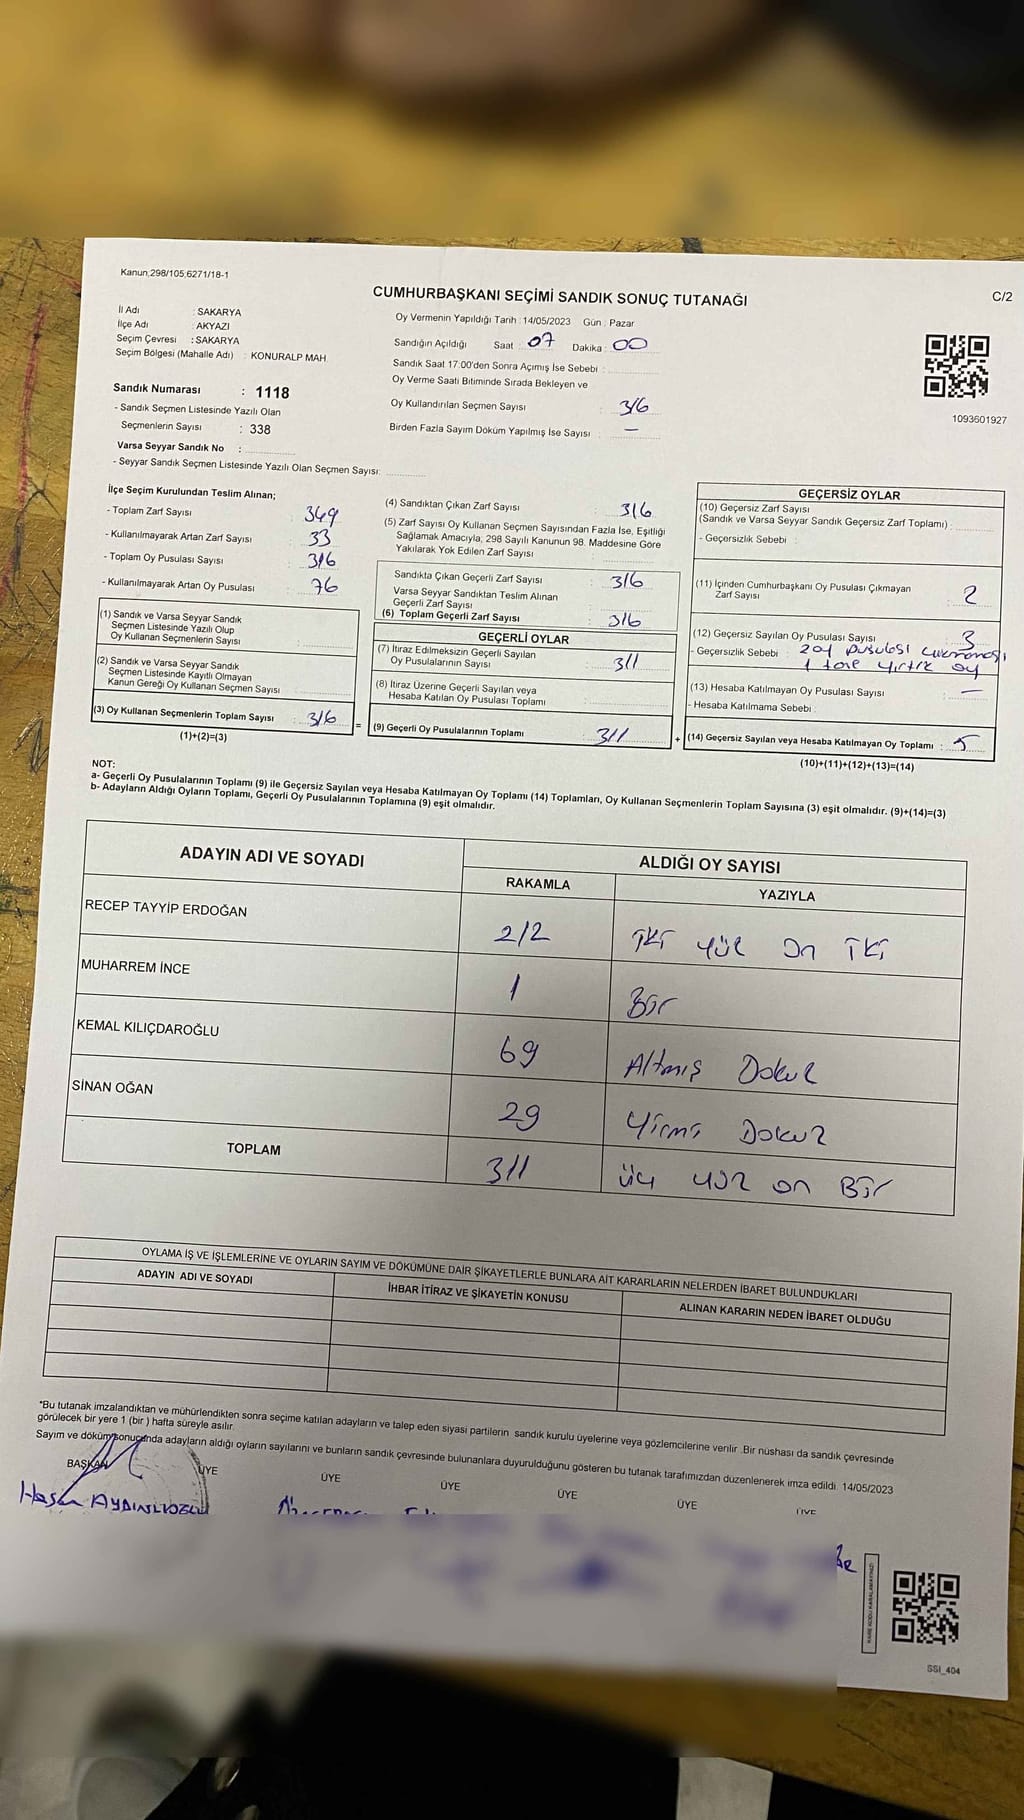 Kanun,298/105,6271/18-1
CUMHURBAŞKANI SEÇİMİ SANDIK SONUÇ TUTANAĞI
C/2
İl Adı : SAKARYA
İlçe Adı : AKYAZI
Seçim Çevresi : SAKARYA
Seçim Bölgesi (Mahalle Adı) : KONURALP MAH.
Sandık Numarası : 1118
- Sandık Seçmen Listesinde Yazılı Olan
Seçmenlerin Sayısı : 338
Varsa Seyyar Sandık No :
- Seyyar Sandık Seçmen Listesinde Yazılı Olan Seçmen Sayısı:
Oy Vermenin Yapıldığı Tarih : 14/05/2023 Gün : Pazar
Sandığın Açıldığı Saat : 07 Dakika : 00
Sandık Saat 17:00'den Sonra Açımış İse Sebebi :
Oy Verme Saati Bitiminde Sırada Bekleyen ve
Oy Kullandırılan Seçmen Sayısı : 316
Birden Fazla Sayım Döküm Yapılmış İse Sayısı : —
1093601927
İlçe Seçim Kurulundan Teslim Alınan;
- Toplam Zarf Sayısı : 349
- Kullanılmayarak Artan Zarf Sayısı : 33
- Toplam Oy Pusulası Sayısı : 316
- Kullanılmayarak Artan Oy Pusulası : 76
(1) Sandık ve Varsa Seyyar Sandık
Seçmen Listesinde Yazılı Olup
Oy Kullanan Seçmenlerin Sayısı :
(2) Sandık ve Varsa Seyyar Sandık
Seçmen Listesinde Kayıtlı Olmayan
Kanun Gereği Oy Kullanan Seçmen Sayısı :
(3) Oy Kullanan Seçmenlerin Toplam Sayısı : 316 =
(1)+(2)=(3)
(4) Sandıktan Çıkan Zarf Sayısı : 316
(5) Zarf Sayısı Oy Kullanan Seçmen Sayısından Fazla İse, Eşitliği
Sağlamak Amacıyla; 298 Sayılı Kanunun 98. Maddesine Göre
Yakılarak Yok Edilen Zarf Sayısı :
Sandıkta Çıkan Geçerli Zarf Sayısı : 316
Varsa Seyyar Sandıktan Teslim Alınan
Geçerli Zarf Sayısı :
(6) Toplam Geçerli Zarf Sayısı : 316
GEÇERLİ OYLAR
(7) İtiraz Edilmeksizin Geçerli Sayılan
Oy Pusulalarının Sayısı : 311
(8) İtiraz Üzerine Geçerli Sayılan veya
Hesaba Katılan Oy Pusulası Toplamı :
(9) Geçerli Oy Pusulalarının Toplamı : 311 +
GEÇERSİZ OYLAR
(10) Geçersiz Zarf Sayısı
(Sandık ve Varsa Seyyar Sandık Geçersiz Zarf Toplamı) :
- Geçersizlik Sebebi :
(11) İçinden Cumhurbaşkanı Oy Pusulası Çıkmayan
Zarf Sayısı : 2
(12) Geçersiz Sayılan Oy Pusulası Sayısı : 3
- Geçersizlik Sebebi : 2 oy pusulası çıkmaması
1 tane yırtık oy
(13) Hesaba Katılmayan Oy Pusulası Sayısı : —
- Hesaba Katılmama Sebebi :
(14) Geçersiz Sayılan veya Hesaba Katılmayan Oy Toplamı : 5
(10)+(11)+(12)+(13)=(14)
NOT:
a- Geçerli Oy Pusulalarının Toplamı (9) ile Geçersiz Sayılan veya Hesaba Katılmayan Oy Toplamı (14) Toplamları, Oy Kullanan Seçmenlerin Toplam Sayısına (3) eşit olmalıdır. (9)+(14)=(3)
b- Adayların Aldığı Oyların Toplamı, Geçerli Oy Pusulalarının Toplamına (9) eşit olmalıdır.
ADAYIN ADI VE SOYADI ALDIĞI OY SAYISI
RAKAMLA YAZIYLA
RECEP TAYYİP ERDOĞAN 212 İki yüz on iki
MUHARREM İNCE 1 Bir
KEMAL KILIÇDAROĞLU 69 Altmış Dokuz
SİNAN OĞAN 29 Yirmi Dokuz
TOPLAM 311 üç yüz on Bir
OYLAMA İŞ VE İŞLEMLERİNE VE OYLARIN SAYIM VE DÖKÜMÜNE DAİR ŞİKAYETLERLE BUNLARA AİT KARARLARIN NELERDEN İBARET BULUNDUKLARI
ADAYIN ADI VE SOYADI İHBAR İTİRAZ VE ŞİKAYETİN KONUSU ALINAN KARARIN NEDEN İBARET OLDUĞU
*Bu tutanak imzalandıktan ve mühürlendikten sonra seçime katılan adayların ve talep eden siyasi partilerin sandık kurulu üyelerine veya gözlemcilerine verilir. Bir nüshası da sandık çevresinde
görülecek bir yere 1 (bir ) hafta süreyle asılır.
Sayım ve döküm sonucunda adayların aldığı oyların sayılarını ve bunların sandık çevresinde bulunanlara duyurulduğunu gösteren bu tutanak tarafımızdan düzenlenerek imza edildi. 14/05/2023
BAŞKAN ÜYE ÜYE ÜYE ÜYE ÜYE ÜYE
Hasan
KARE KODU KARALAMAYINIZ!
SSI_404